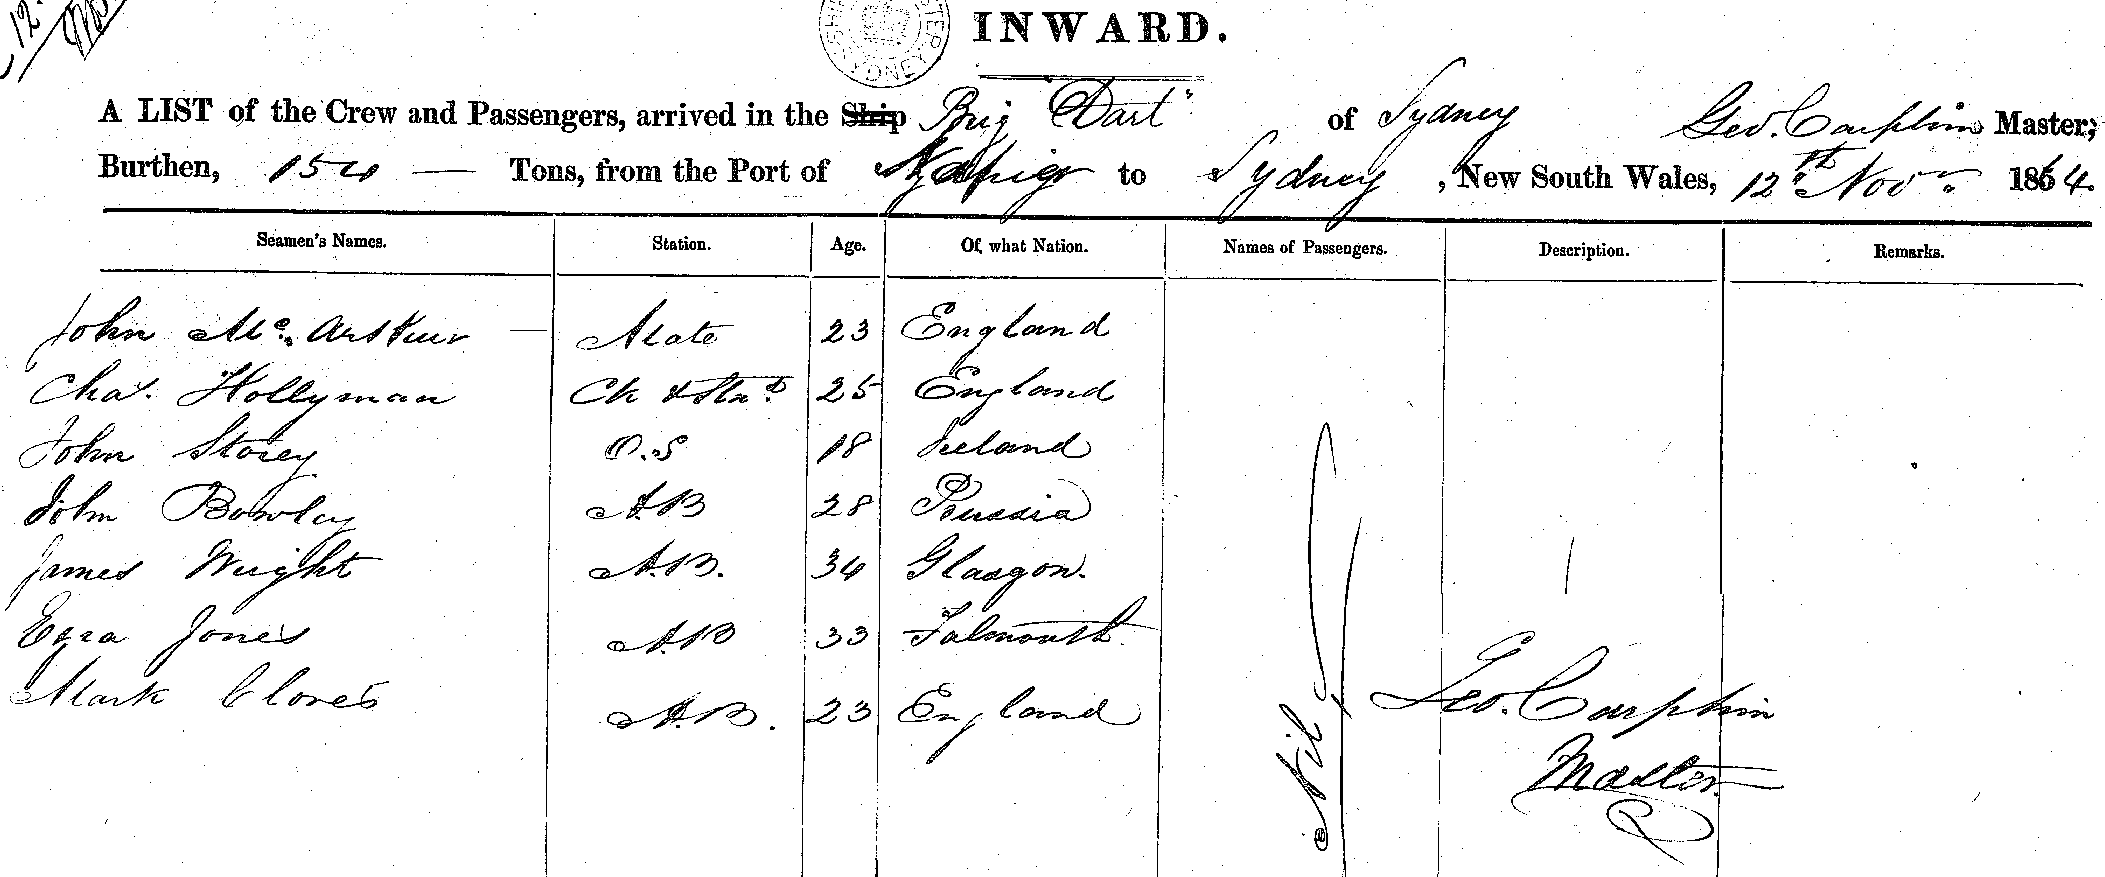 12
INWARD.
A LIST of the Crew and Passengers, arrived in the Ship Brig "Dart" of Sydney Geo. Carphin Master;
Burthen, 154 — Tons, from the Port of to Sydney, New South Wales, 12th Nov. 1864.
Seamen's Names. Station. Age. Of what Nation. Names of Passengers. Description. Remarks.
John Mc. Arthur — Mate 23 England
Chas. Hollyman Ck & Stwd. 25 England
John Storey O.S 18 Ireland
John Bowley A.B 28
James Wright A.B. 34 Glasgow.
Ezra Jones A.B 33 Falmouth
Mark Cloves A.B. 23 England
Nil
Geo. Carphin
Master